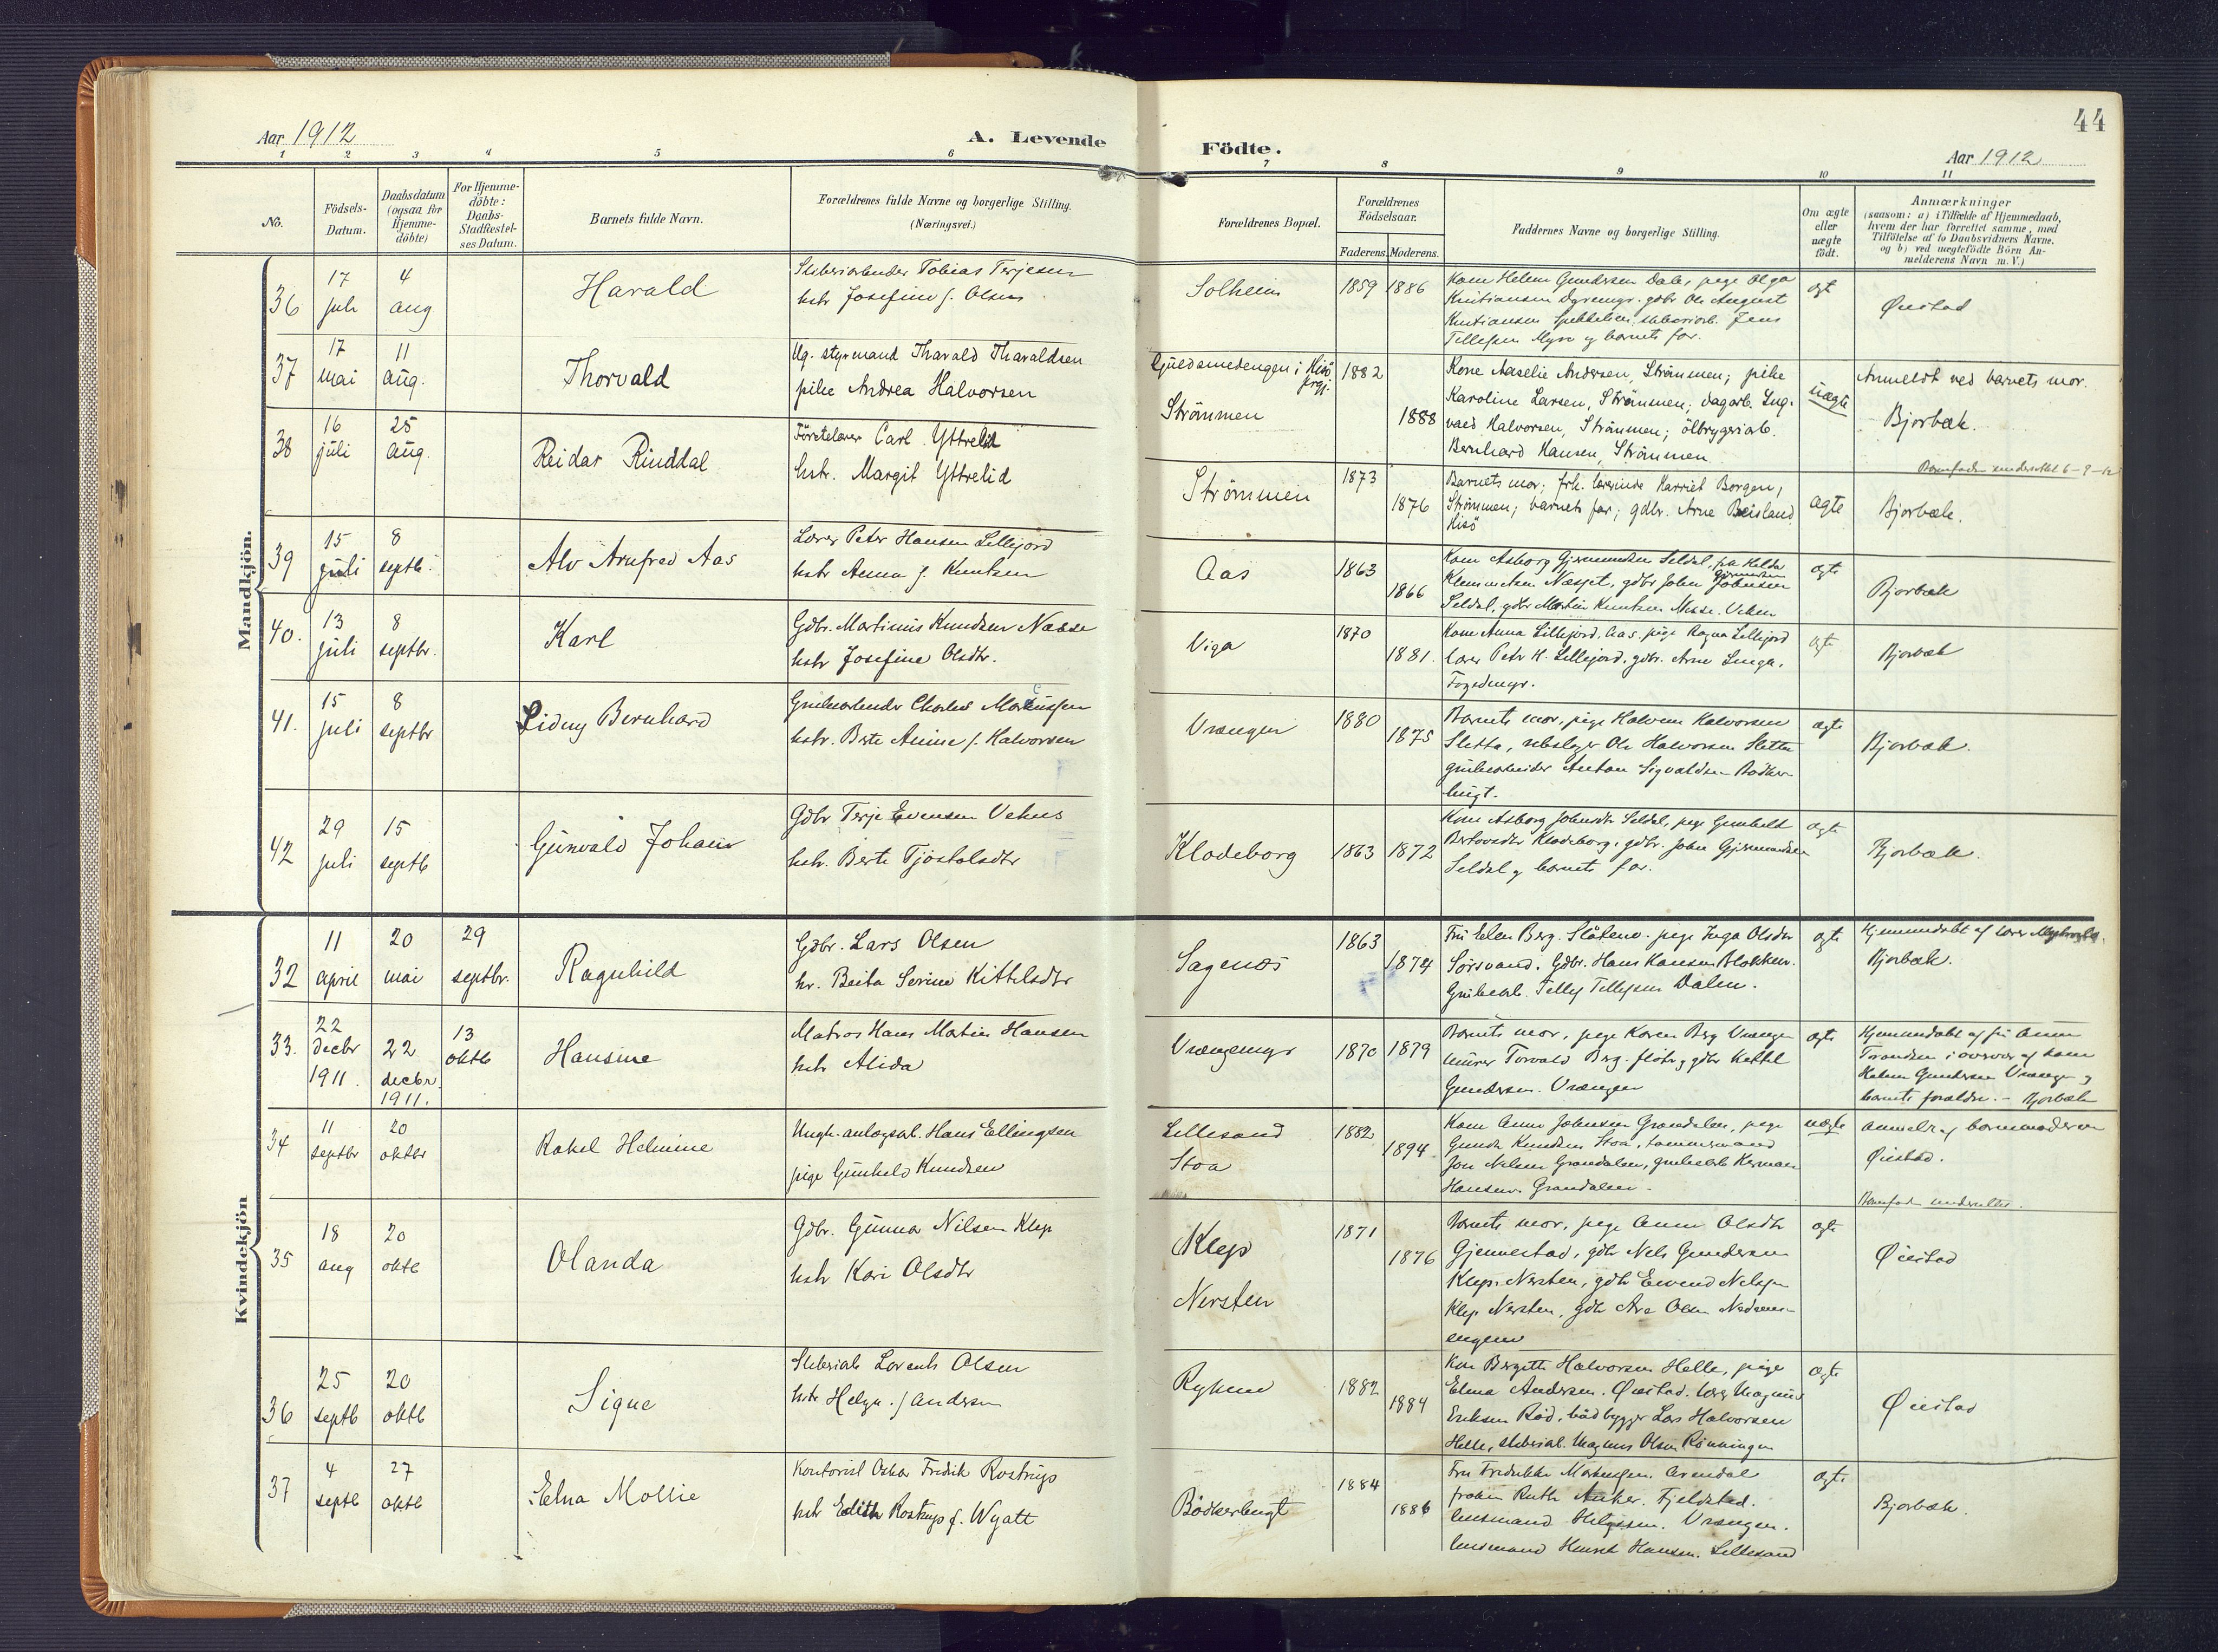 Aar 1912
A. Levende
Födte.
44
Aar 1912
1 2 3 4 5 6 7 8 9 10 11
No.
Födsels-
Datum.
Daabsdatum
(ogsaa for
Hjemme-
döbte)
For Hjemme-
döbte:
Daabs-
Stadfæstel-
ses Datum.
Barnets fulde Navn.
Forældrenes fulde Navne og borgerlige Stilling.
(Næringsvei.)
Forældrenes Bopæl.
Forældrenes
Födselsaar.
Faderens. Moderens.
Faddernes Navne og borgerlige Stilling.
Om ægte
eller
uægte
födt.
Anmærkninger
(saasom: a) i Tilfælde af Hjemmedaab,
hvem der har forrettet samme, med
Tilföielse af to Daabsvidners Navne,
og b) ved uægtefödte Börn An-
melderens Navn m. V.)
Mandkjön.
36
17
juli
4
aug
Harald
Tobias Terjesen
hstr Josefine f. Olsen
Solheim
1859 1886
Kone Helene Gundersen Dale, pige Olga
Kristiansen Dyremyr. gdbr Ole August
Tellefsen Myra og barnets far.
Øiestad
37
17
mai
11
aug.
Thorvald
Ug. styrmand Tharald Tharaldsen
pike Andrea Halvorsen
Guldsmedengen i Hisö
Strömmen
1882
1888
Kone Aaselie Andersen, Strömmen; pike
Karoline Larsen, Strömmen; dagarb. Ing-
vald Halvorsen, Strömmen; ölbryggeriarb.
Bernhard Hansen, Strömmen
uægte
Anmeldt ved barnets mor.
Bjorbæk.
38
16
juli
25
aug.
Reidar Rinddal
Carl Yttrelid
hstr. Margit Yttrelid
Strömmen
1873
1876
Barnets mor; frk. lærerinde Harriet Borgen,
Strömmen; barnets far; gdbr. Arne Beisland
Hisö
ægte
Bjorbæk.
39
15
juli
8
septb.
Alv Arnfred Aas
Lærer Peter Hansen Lillejord
hstr Anna f. Knutsen
Aas
1863
1866
Kone Asborg Gjermundsen Seldal,
Seldal, gdbr Martin Knutsen Næsse. Vehus
ægte
Bjorbæk
40.
13
juli
8
septbr.
Karl
Gdbr. Martinius Knudsen Næsse
hstr Josefine Olsdtr.
Viga
1870
1881.
Kone Anna Lillejord, Aas. pige Ragna Lillejord
lærer Petr H. Lillejord, gdbr. Arne
ægte
Bjorbæk
41.
15
juli
8
septbr
Lidny Bernhard
Grubearbeider Charles
hstr. Berte Anine f. Halvorsen
Vrængen
1880
1875
Barnets mor, pige Halvorsen
Sletta, Ole Halvorsen Sletta
grubearbeider Anton Sigvaldsen Bödker-
bugt.
ægte
Bjorbæk.
42
29
juli
15
septb
Gunvald Johan
Gdbr Terje Evensen Vehus
hstr. Berte Tjöstolsdtr
Klodeborg
1863 1872
Kone Asborg Johnsdtr Seldal, pige Gunhild
Klodeborg, gdbr. John Gjermundsen
Seldal og barnets far.
ægte
Bjorbæk.
Kvindekjön
32
11
april
20
mai
29
septbr.
Ragnhild
Gdbr. Lars Olsen
hr. Berta Serine Kittilsdtr
Sagenæs
1863
1874
Fru Elen Berg. pige Inga Olsdtr
Sörsvand. Gdbr. Hans Hansen Blokken.
Grubearb. Tellef Tellefsen Dalen.
ægte
Hjemmedöbt af lærer
Bjorbæk.
33.
22
decbr
1911.
22
decbr.
1911.
13
oktb
Hansine
Matros Hans Martin Hansen
hstr Alida
Vrængmyr
1870 1879
Barnets mor, pige Karen Berg Vrængen
murer Torvald Berg. gdbr Kettil
Gundersen. Vrængen
ægte
Hjemmedöbt af fru
Helene Gundersen Vrængen og
barnets forældre. – Bjorbæk
34
11
septbr
20
oktbr
Rakel Helmine
Hans Ellingsen
pige Gunhild Knudsen
Lillesand
Stoa
1882
1894
Kone Anna Johnsen Grandalen, pige
Knudsen Stoa, tømmermand
Jon Nilsen Grandalen, grubearb Herman
Hansen Grandalen.
uægte
anmeldt af barnemoderen
Øiestad.
35
18
aug
20
oktb
Olanda
Gdbr. Gunnar Nilsen Klep
hstr Kari Olsdtr
Klep
Nersten
1871
1876
Barnets mor, pige Anne Olsdtr
Gjennestad, gdbr Nils Gundersen
Klep Nersten, gdbr Eivend Nilsen
Klep Nersten, gdbr
engene
ægte
Øiestad
36
25
septb
20
oktb
Signe
Lorents Olsen
hstr Helga f. Andersen
Rykene
1882
1884
Kone Bergitte Halvorsen Helle, pige
Elma Andersen. Øiestad. lærer Magnus
Eriksen Röd, baadbygger Lars Halvorsen
Helle, Magnus Olsen Rönningen
ægte
Øiestad
37
4
septb
27
oktb
Edna Mollie
Kontorist Oskar Fredrik Rostrup
hstr Edith Rostrup f. Wyatt
Bödkerbugt
1884
1886
Fru Fredrikke Arendal
frøken Ruth Anker. Fjeldstad.
Vrængen.
Henrik Hansen. Lillesand
ægte
Bjorbæk.